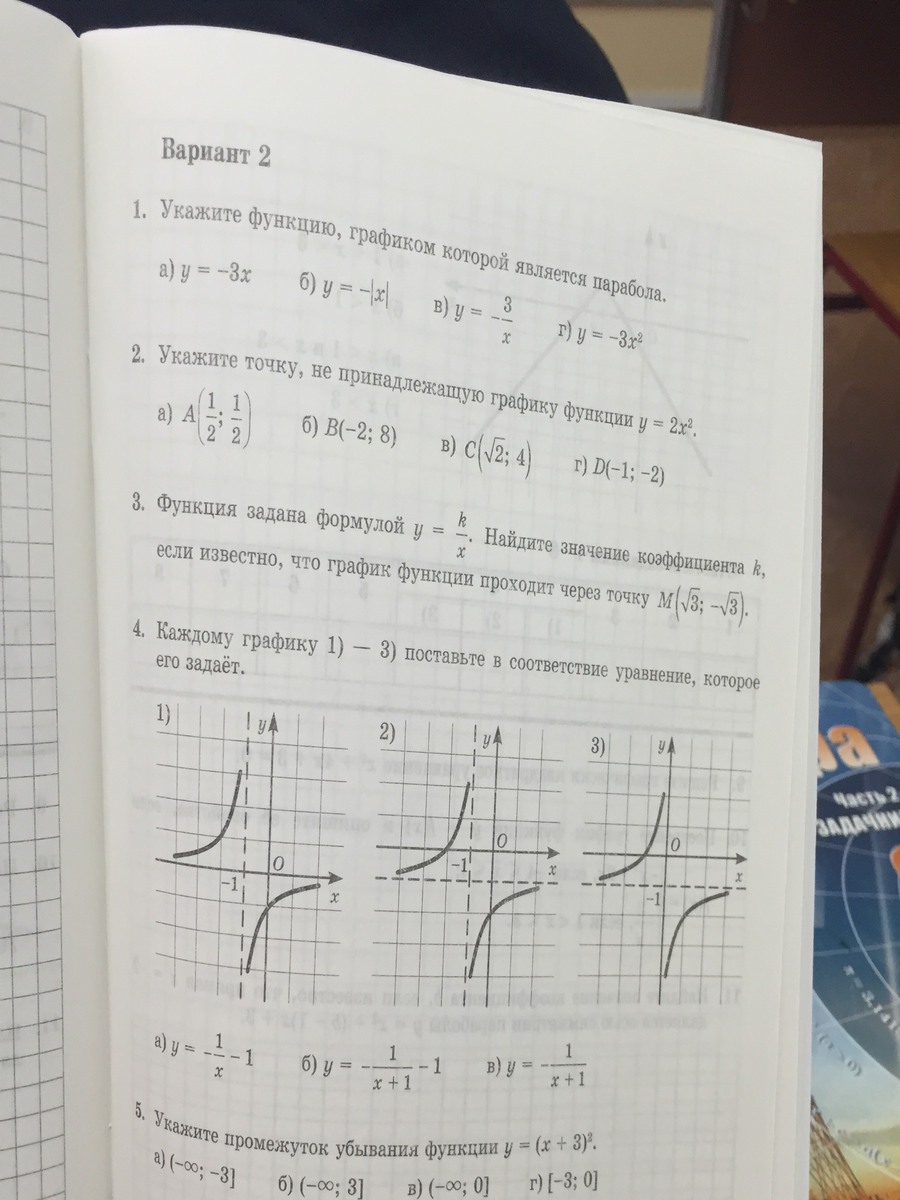 Вариант 2
1. Укажите функцию, графиком которой является парабола.
а) y = −3x б) y = −|x| в) y = −3/x г) y = −3x²
2. Укажите точку, не принадлежащую графику функции y = 2x².
а) A(1/2; 1/2) б) B(−2; 8) в) C(√2; 4) г) D(−1; −2)
3. Функция задана формулой y = k/x. Найдите значение коэффициента k,
если известно, что график функции проходит через точку M(√3; −√3).
4. Каждому графику 1) — 3) поставьте в соответствие уравнение, которое
его задаёт.
1) y O −1 x
2) y O −1 x
3) y O −1 x
а) y = −1/x − 1 б) y = −1/(x + 1) − 1 в) y = −1/(x + 1)
5. Укажите промежуток убывания функции y = (x + 3)².
а) (−∞; −3] б) (−∞; 3] в) (−∞; 0] г) [−3; 0]
ра
Часть 2
ЗАДАЧНИ